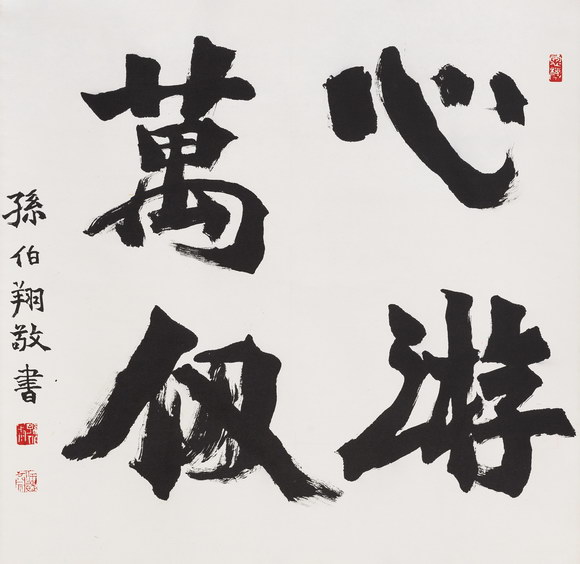 心游
萬仞
孫伯翔敬書